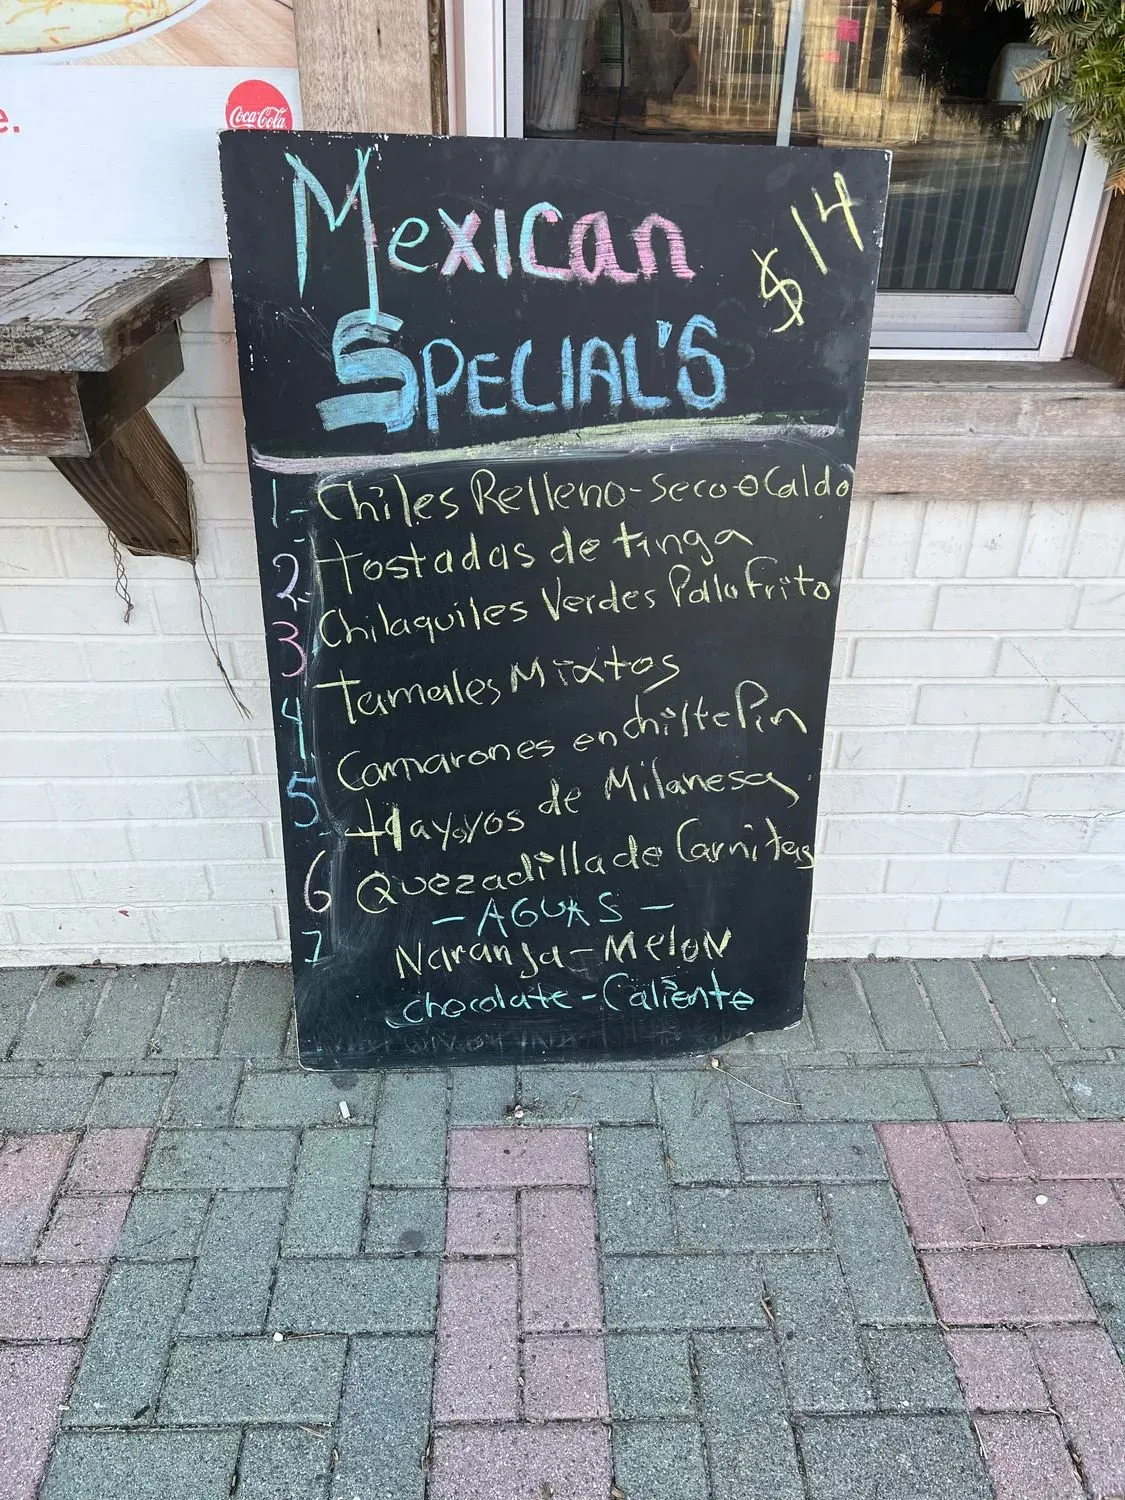 e.
Coca-Cola
Mexican
$14
SPECIAL'S
1- Chiles Relleno - Seco o Caldo
2- tostadas de tinga
3 Chilaquiles Verdes Pollo Frito
4 Tamales Mixtos
5- Camarones en chiltePin
6 tlayoyos de Milanesa
7 Quezadilla de Carnitas
- AGUAS -
NaranJa - MeloN
chocolate - Caliente